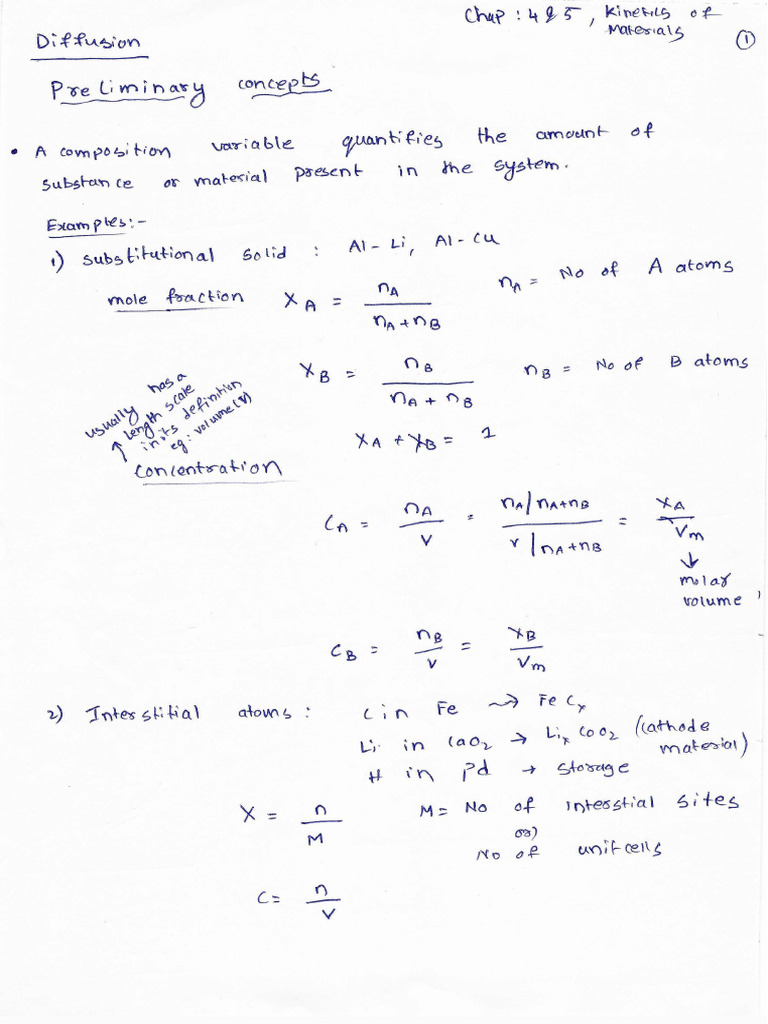 Chap : 4 & 5 , Kinetics of
Materials
①
Diffusion
Preliminary concepts
• A composition variable quantifies the amount of
substance or material present in the system.
Examples:-
1) Substitutional solid : Al - Li, Al - Cu
mole fraction X_A = n_A / (n_A + n_B) n_A = No of A atoms
X_B = n_B / (n_A + n_B) n_B = No of B atoms
X_A + X_B = 1
usually has a
↑ length scale
in its definition
eg: volume (V)
Concentration
C_A = n_A / V = (n_A / n_A+n_B) / (V / n_A+n_B) = X_A / V_m
↓
molar
volume
C_B = n_B / V = X_B / V_m
2) Interstitial atoms : C in Fe ⇝ Fe C_x
Li in CaO₂ → Li_x CoO₂ (Cathode
material)
H in Pd → Storage
X = n / M M = No of interstial sites
or)
No of unitcells
C = n / V